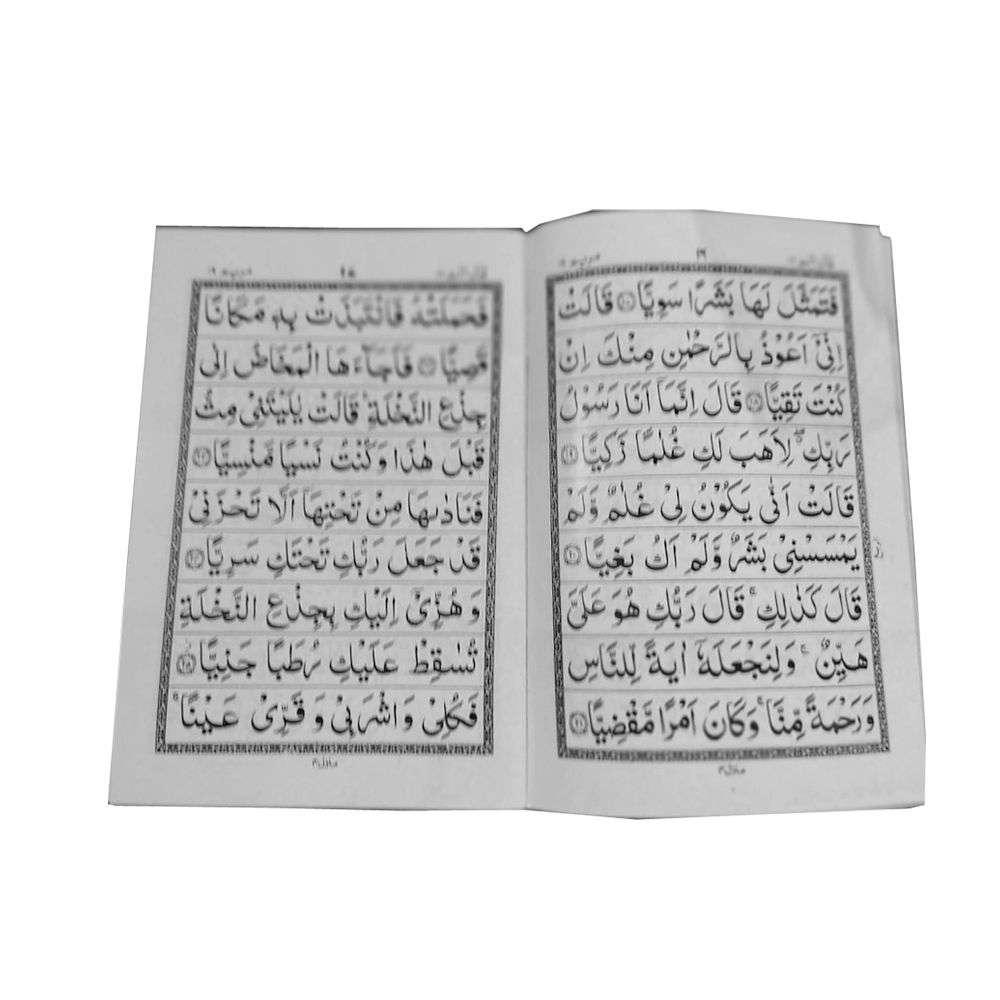 ٢٦
فَتَمَثَّلَ لَهَا بَشَرًا سَوِيًّا ﴿١٧﴾ قَالَتْ
اِنِّيْٓ اَعُوْذُ بِالرَّحْمٰنِ مِنْكَ اِنْ
كُنْتَ تَقِيًّا ﴿١٨﴾ قَالَ اِنَّمَآ اَنَا رَسُوْلُ
رَبِّكِ ۖ لِاَهَبَ لَكِ غُلٰمًا زَكِيًّا ﴿١٩﴾
قَالَتْ اَنّٰى يَكُوْنُ لِيْ غُلٰمٌ وَّلَمْ
يَمْسَسْنِيْ بَشَرٌ وَّلَمْ اَكُ بَغِيًّا ﴿٢٠﴾
قَالَ كَذٰلِكِ ۚ قَالَ رَبُّكِ هُوَ عَلَيَّ
هَيِّنٌ ۚ وَلِنَجْعَلَهٗٓ اٰيَةً لِّلنَّاسِ
وَرَحْمَةً مِّنَّا ۚ وَكَانَ اَمْرًا مَّقْضِيًّا ﴿٢١﴾
فَحَمَلَتْهُ فَانْتَبَذَتْ بِهٖ مَكَانًا
قَصِيًّا ﴿٢٢﴾ فَاَجَآءَهَا الْمَخَاضُ اِلٰى
جِذْعِ النَّخْلَةِ ۚ قَالَتْ يٰلَيْتَنِيْ مِتُّ
قَبْلَ هٰذَا وَكُنْتُ نَسْيًا مَّنْسِيًّا ﴿٢٣﴾
فَنَادٰىهَا مِنْ تَحْتِهَآ اَلَّا تَحْزَنِيْ
قَدْ جَعَلَ رَبُّكِ تَحْتَكِ سَرِيًّا ﴿٢٤﴾
وَهُزِّيْٓ اِلَيْكِ بِجِذْعِ النَّخْلَةِ
تُسٰقِطْ عَلَيْكِ رُطَبًا جَنِيًّا ﴿٢٥﴾
فَكُلِيْ وَاشْرَبِيْ وَقَرِّيْ عَيْنًا ۚ